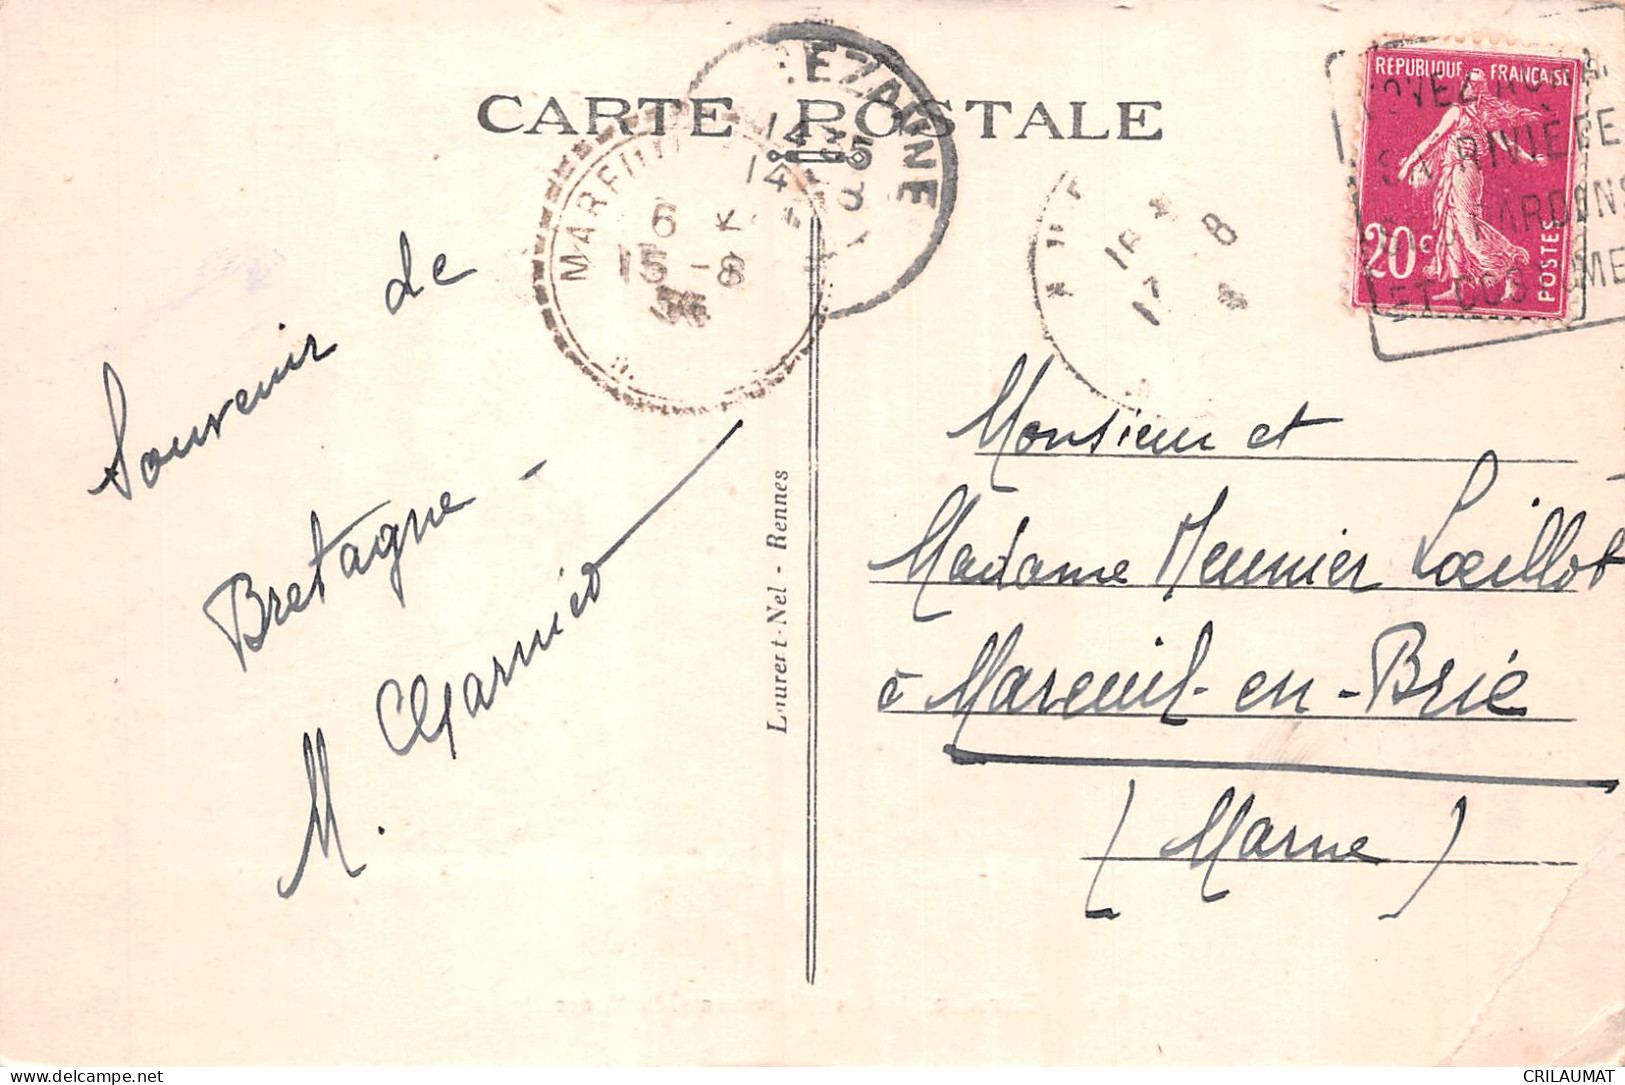 CARTE POSTALE
EZANNE
14 35
14 8
MAREUIL
6
15 -8
36
17 8
REPUBLIQUE FRANÇAISE
20c
POSTES
RIVIÈRE
PARDONS
ET COSTUMES
Souvenir de
Bretagne -
M.
Monsieur et
Madame Meunier Lœillot
à Mareuil-en-Brie
(Marne)
Lauret-Nel - Rennes
delcampe.net
CRILAUMAT